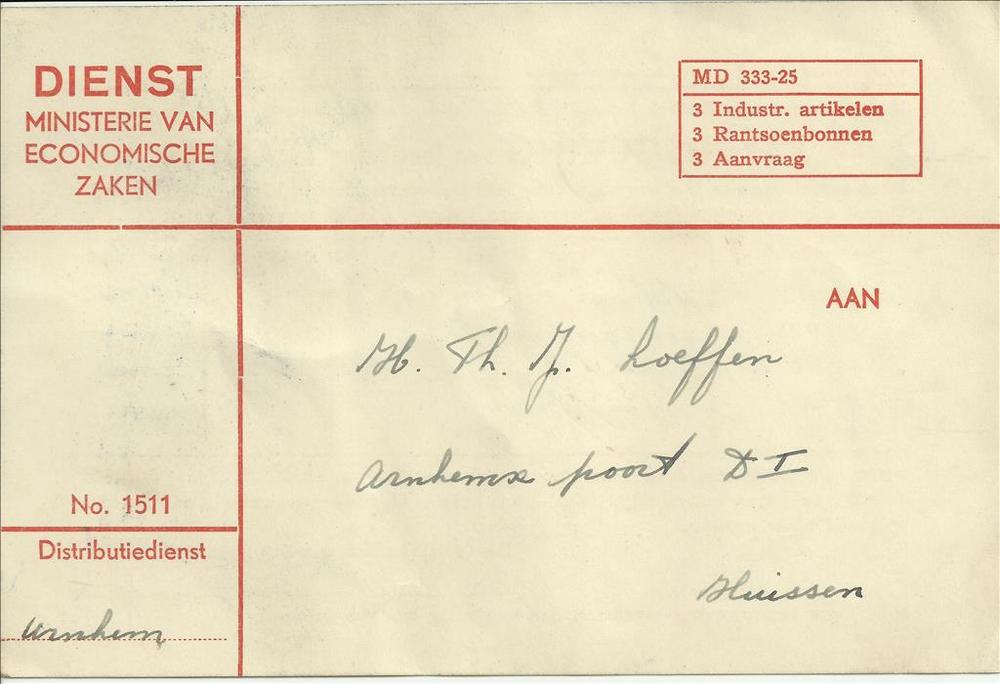 DIENST
MINISTERIE VAN
ECONOMISCHE
ZAKEN
MD 333-25
3 Industr. artikelen
3 Rantsoenbonnen
3 Aanvraag
AAN
H. Th. J. Loeffen
Arnhemse poort D I
Huissen
No. 1511
Distributiedienst
Arnhem